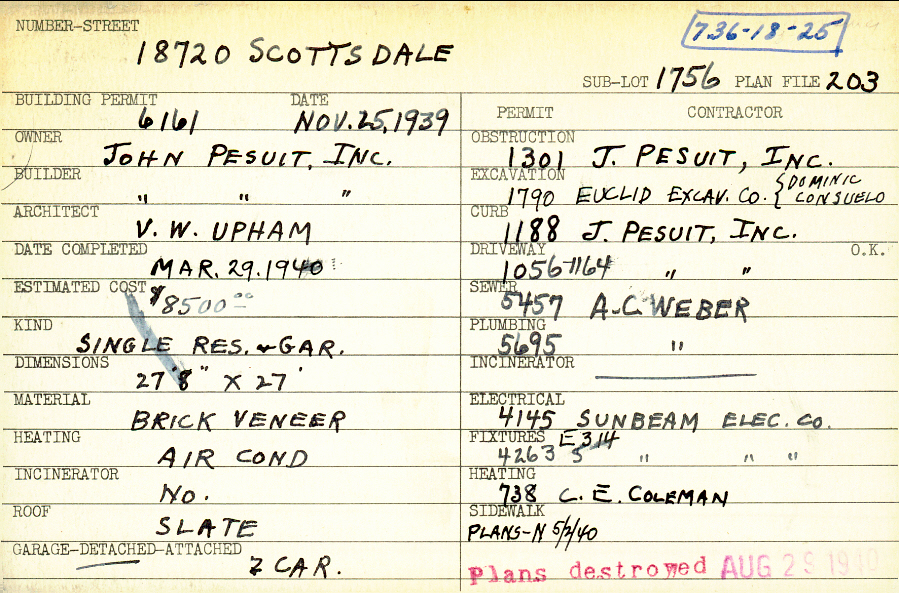 NUMBER-STREET
18720 SCOTTSDALE
736-18-25
SUB-LOT 1756 PLAN FILE 203
BUILDING PERMIT DATE
6161 NOV. 25, 1939
OWNER
JOHN PESUIT, INC.
BUILDER
" " "
ARCHITECT
V. W. UPHAM
DATE COMPLETED
MAR. 29. 1940
ESTIMATED COST
$8500 00
KIND
SINGLE RES. & GAR.
DIMENSIONS
27'8" X 27'
MATERIAL
BRICK VENEER
HEATING
AIR COND
INCINERATOR
NO.
ROOF
SLATE
GARAGE-DETACHED-ATTACHED
2 CAR.
PERMIT CONTRACTOR
OBSTRUCTION
1301 J. PESUIT, INC.
EXCAVATION
1790 EUCLID EXCAV. CO. { DOMINIC
CONSUELO
CURB
1188 J. PESUIT, INC.
DRIVEWAY O.K.
1056-1164 " "
SEWER
5457 A.C. WEBER
PLUMBING
5695 "
INCINERATOR
ELECTRICAL
4145 SUNBEAM ELEC. CO.
FIXTURES E 314
4263 5 " " "
HEATING
738 C. E. COLEMAN
SIDEWALK
PLANS-N 5/2/40
Plans destroyed AUG 29 1940